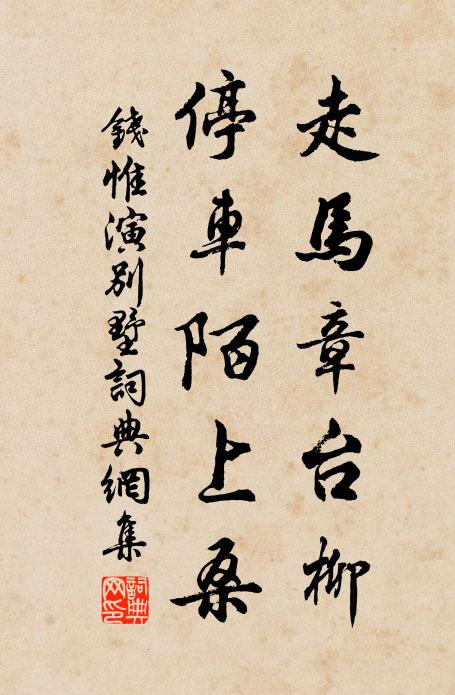 走馬章台柳
停車陌上桑
錢惟演別墅詞典網集
詞典網印